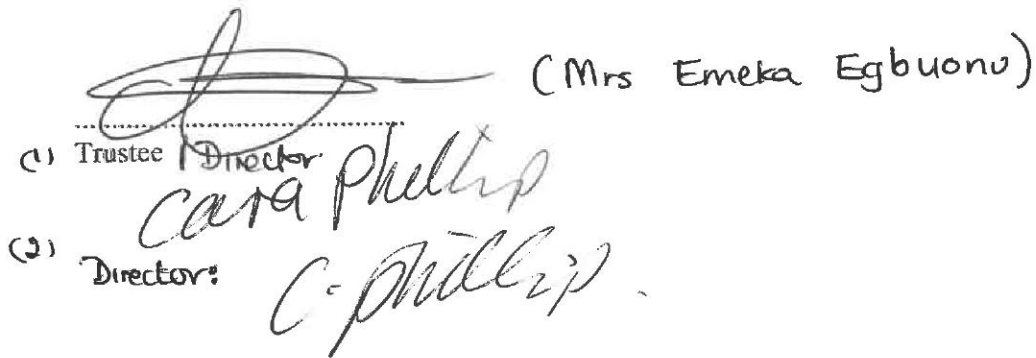 (Mrs Emeka Egbuonu)
(1) Trustee / Director:
Cara Phillip
(2) Director:
C. Phillip.